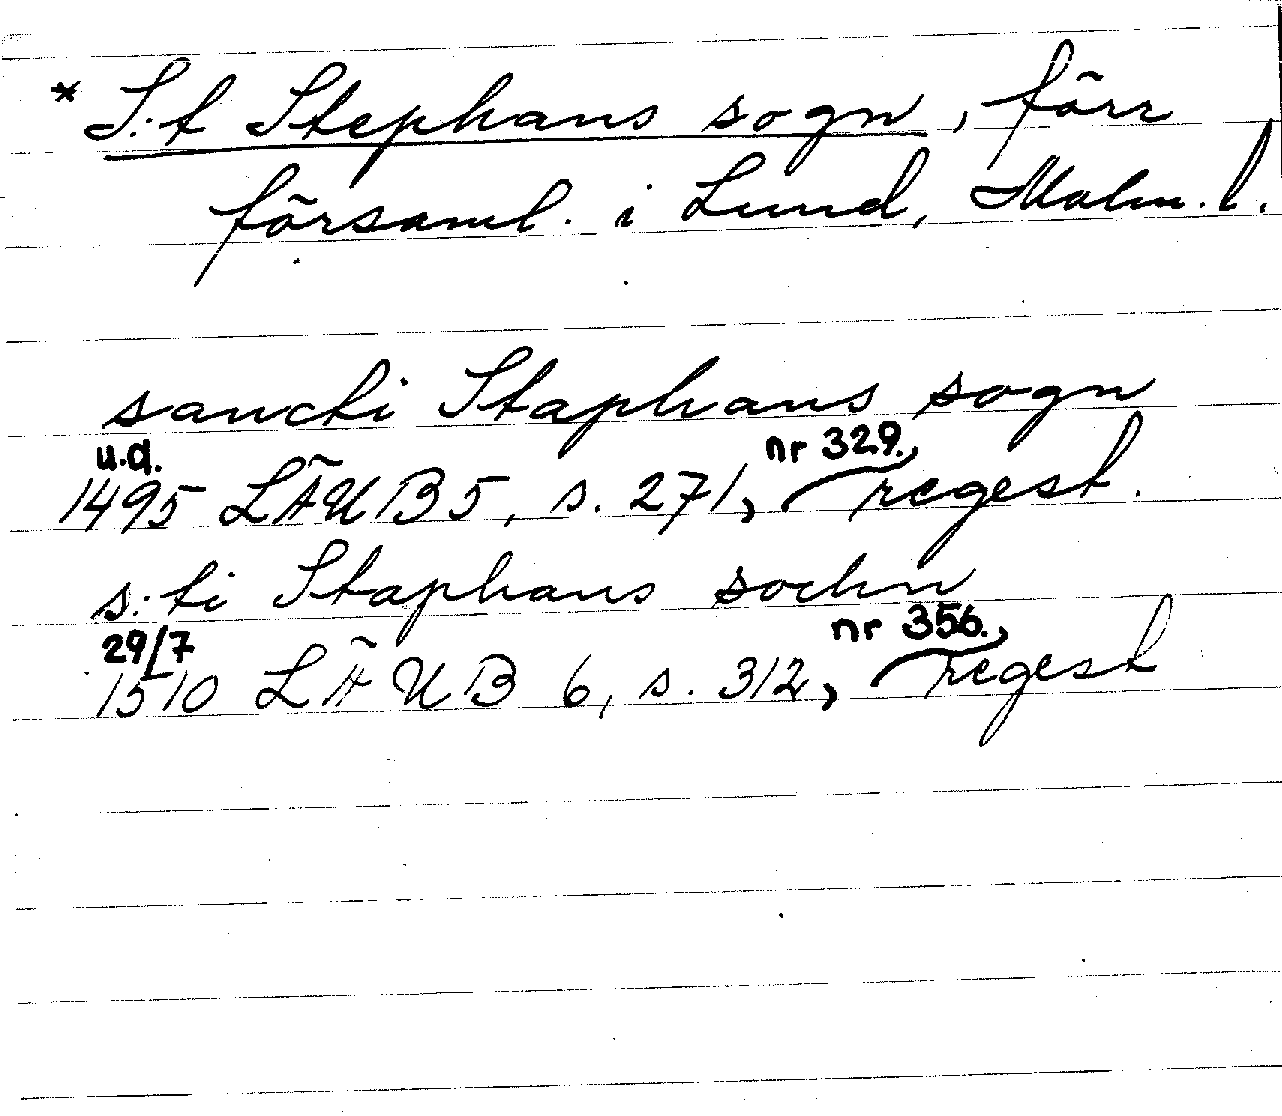 * S:t Stephans sogn, förr
församl. i Lund, Malm. l.
sancti Staphans sogn
u.d. nr 329.,
1495 LÄUB 5, s. 271, regest.
s:ti Staphans sochn
29/7 nr 356.,
1510 LÄUB 6, s. 312, regest